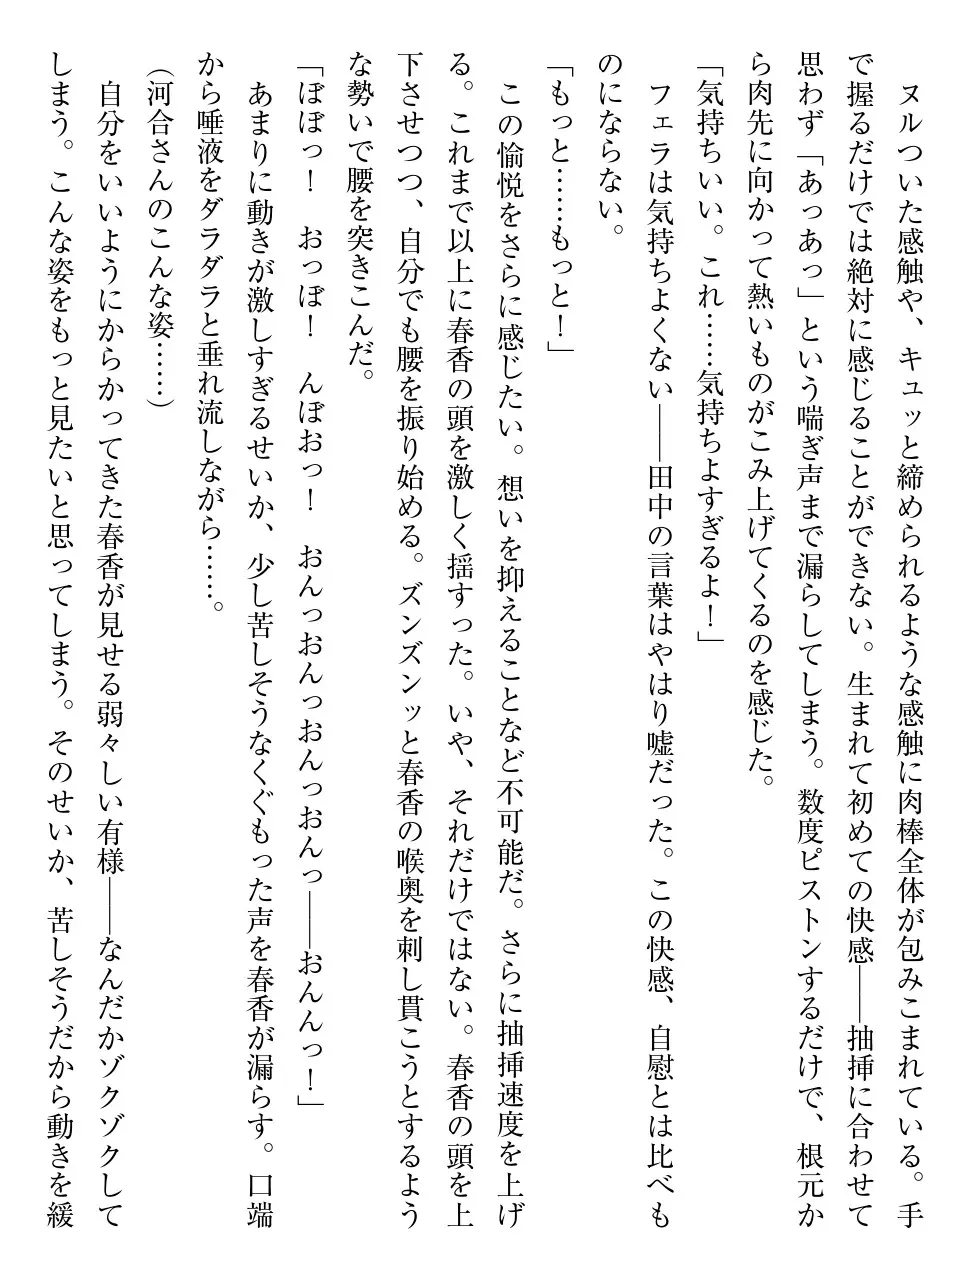 ヌルついた感触や、キュッと締められるような感触に肉棒全体が包みこまれている。手
で握るだけでは絶対に感じることができない。生まれて初めての快感――抽挿に合わせて
思わず「あっあっ」という喘ぎ声まで漏らしてしまう。数度ピストンするだけで、根元か
ら肉先に向かって熱いものがこみ上げてくるのを感じた。
「気持ちいい。これ……気持ちよすぎるよ！」
フェラは気持ちよくない――田中の言葉はやはり嘘だった。この快感、自慰とは比べも
のにならない。
「もっと……もっと！」
この愉悦をさらに感じたい。想いを抑えることなど不可能だ。さらに抽挿速度を上げ
る。これまで以上に春香の頭を激しく揺すった。いや、それだけではない。春香の頭を上
下させつつ、自分でも腰を振り始める。ズンズンッと春香の喉奥を刺し貫こうとするよう
な勢いで腰を突きこんだ。
「ぼぼっ！　おっぼ！　んぼおっ！　おんっおんっおんっおんっ――おんんっ！」
あまりに動きが激しすぎるせいか、少し苦しそうなくぐもった声を春香が漏らす。口端
から唾液をダラダラと垂れ流しながら……。
（河合さんのこんな姿……）
自分をいいようにからかってきた春香が見せる弱々しい有様――なんだかゾクゾクして
しまう。こんな姿をもっと見たいと思ってしまう。そのせいか、苦しそうだから動きを緩